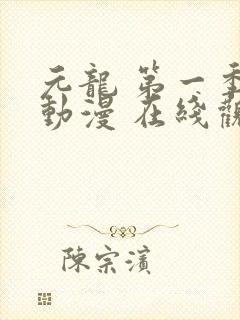 元龍 第一季
動漫 在綫觀
陳宗濱